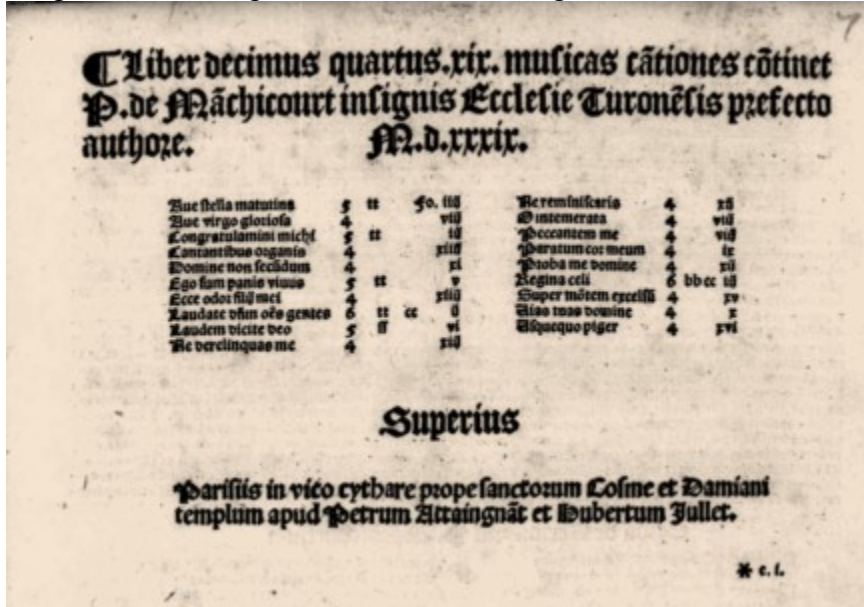 7
¶ Liber decimus quartus.xix. musicas cātiones cōtinet
P. de Māchicourt insignis Ecclesie Turonēsis prefecto
authore. M.d.xxxix.
Aue stella matutina 5 tt Fo. iiij
Aue virgo gloriosa 4 viij
Congratulamini michi 5 tt iij
Cantantibus organis 4 xiiij
Domine non secūdum 4 xi
Ego sum panis viuus 5 tt v
Ecce odor filij mei 4 xiiij
Laudate dñm oēs gentes 6 tt cc ij
Laudem dicite deo 5 ſſ vi
Ne derelinquas me 4 xiij
Ne reminiscaris 4 xij
O intemerata 4 viij
Peccantem me 4 viij
Paratum cor meum 4 ix
Proba me domine 4 xij
Regina celi 6 bb cc iij
Super mōtem excelsū 4 xv
Vias tuas domine 4 x
Usquequo piger 4 xvi
Superius
Parisiis in vico cythare prope sanctorum Cosme et Damiani
templum apud Petrum Attaingnāt et Hubertum Jullet.
* c. i.